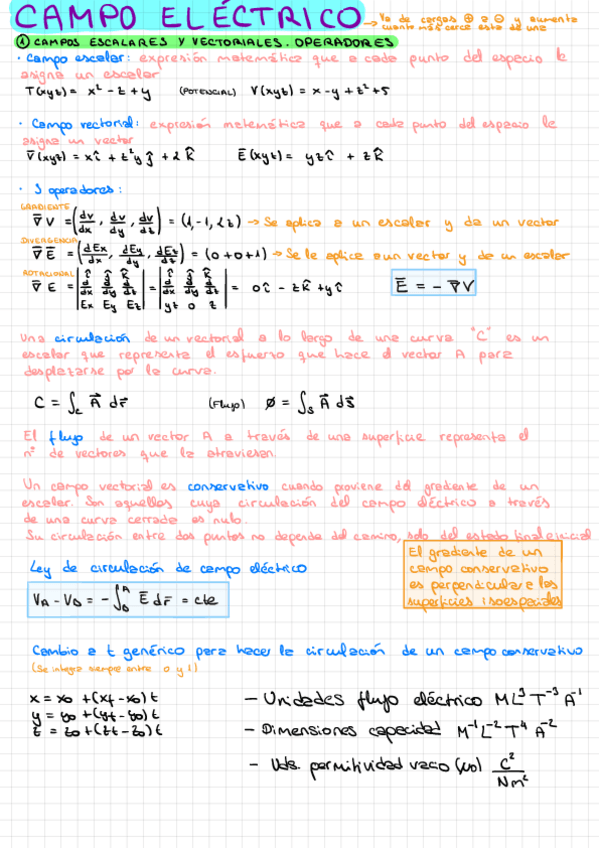 CAMPO ELÉCTRICO → Va de cargas ⊕ a ⊖ y aumenta
cuanto más cerca esta de una
① CAMPOS ESCALARES Y VECTORIALES. OPERADORES
· Campo escalar: expresión matemática que a cada punto del espacio le
asigna un escalar
T(xyz) = x² - z + y (POTENCIAL) V(xyz) = x - y + z² + 5
· Campo vectorial: expresión matemática que a cada punto del espacio le
asigna un vector
V̄(xyz) = xî + z²y ĵ + 2 k̂ Ē(xyz) = yzî + zk̂
· 3 operadores:
GRADIENTE
∇̄ V = (dv/dx, dv/dy, dv/dz) = (1, -1, 2z) → Se aplica a un escalar y da un vector
DIVERGENCIA
∇̄ Ē = (dEx/dx, dEy/dy, dEz/dz) = (0+0+1) → Se le aplica a un vector y da un escalar
ROTACIONAL
∇̄ E = | î ĵ k̂ | = | î ĵ k̂ | = 0î - zk̂ + yî Ē = - ∇̄V
| d/dx d/dy d/dz | | d/dx d/dy d/dz |
| Ex Ey Ez | | yz 0 z |
Una circulación de un vectorial a lo largo de una curva "C" es un
escalar que representa el esfuerzo que hace el vector A para
desplazarse por la curva.
C = ∫c A⃗ dr⃗ (Flujo) Ø = ∫s A⃗ ds⃗
El flujo de un vector A a través de una superficie representa el
nº de vectores que la atraviesan.
Un campo vectorial es conservativo cuando proviene del gradiente de un
escalar. Son aquellos cuya circulación del campo eléctrico a través
de una curva cerrada es nulo.
Su circulación entre dos puntos no depende del camino, solo del estado final e inicial
El gradiente de un
campo conservativo
es perpendicular a las
superficies isoespaciales
Ley de circulación de campo eléctrico
VA - VB = - ∫ᴮᴬ Ē dr̄ = cte
Cambio a t genérico para hacer la circulación de un campo conservativo
(Se integra siempre entre 0 y 1)
x = x0 + (xf - x0) t
y = y0 + (yf - y0) t
z = z0 + (zf - z0) t
- Unidades flujo eléctrico M L³ T⁻³ A⁻¹
- Dimensiones capacidad M⁻¹ L⁻² T⁴ A⁻²
- Uds. permitividad vacio C²/Nm²